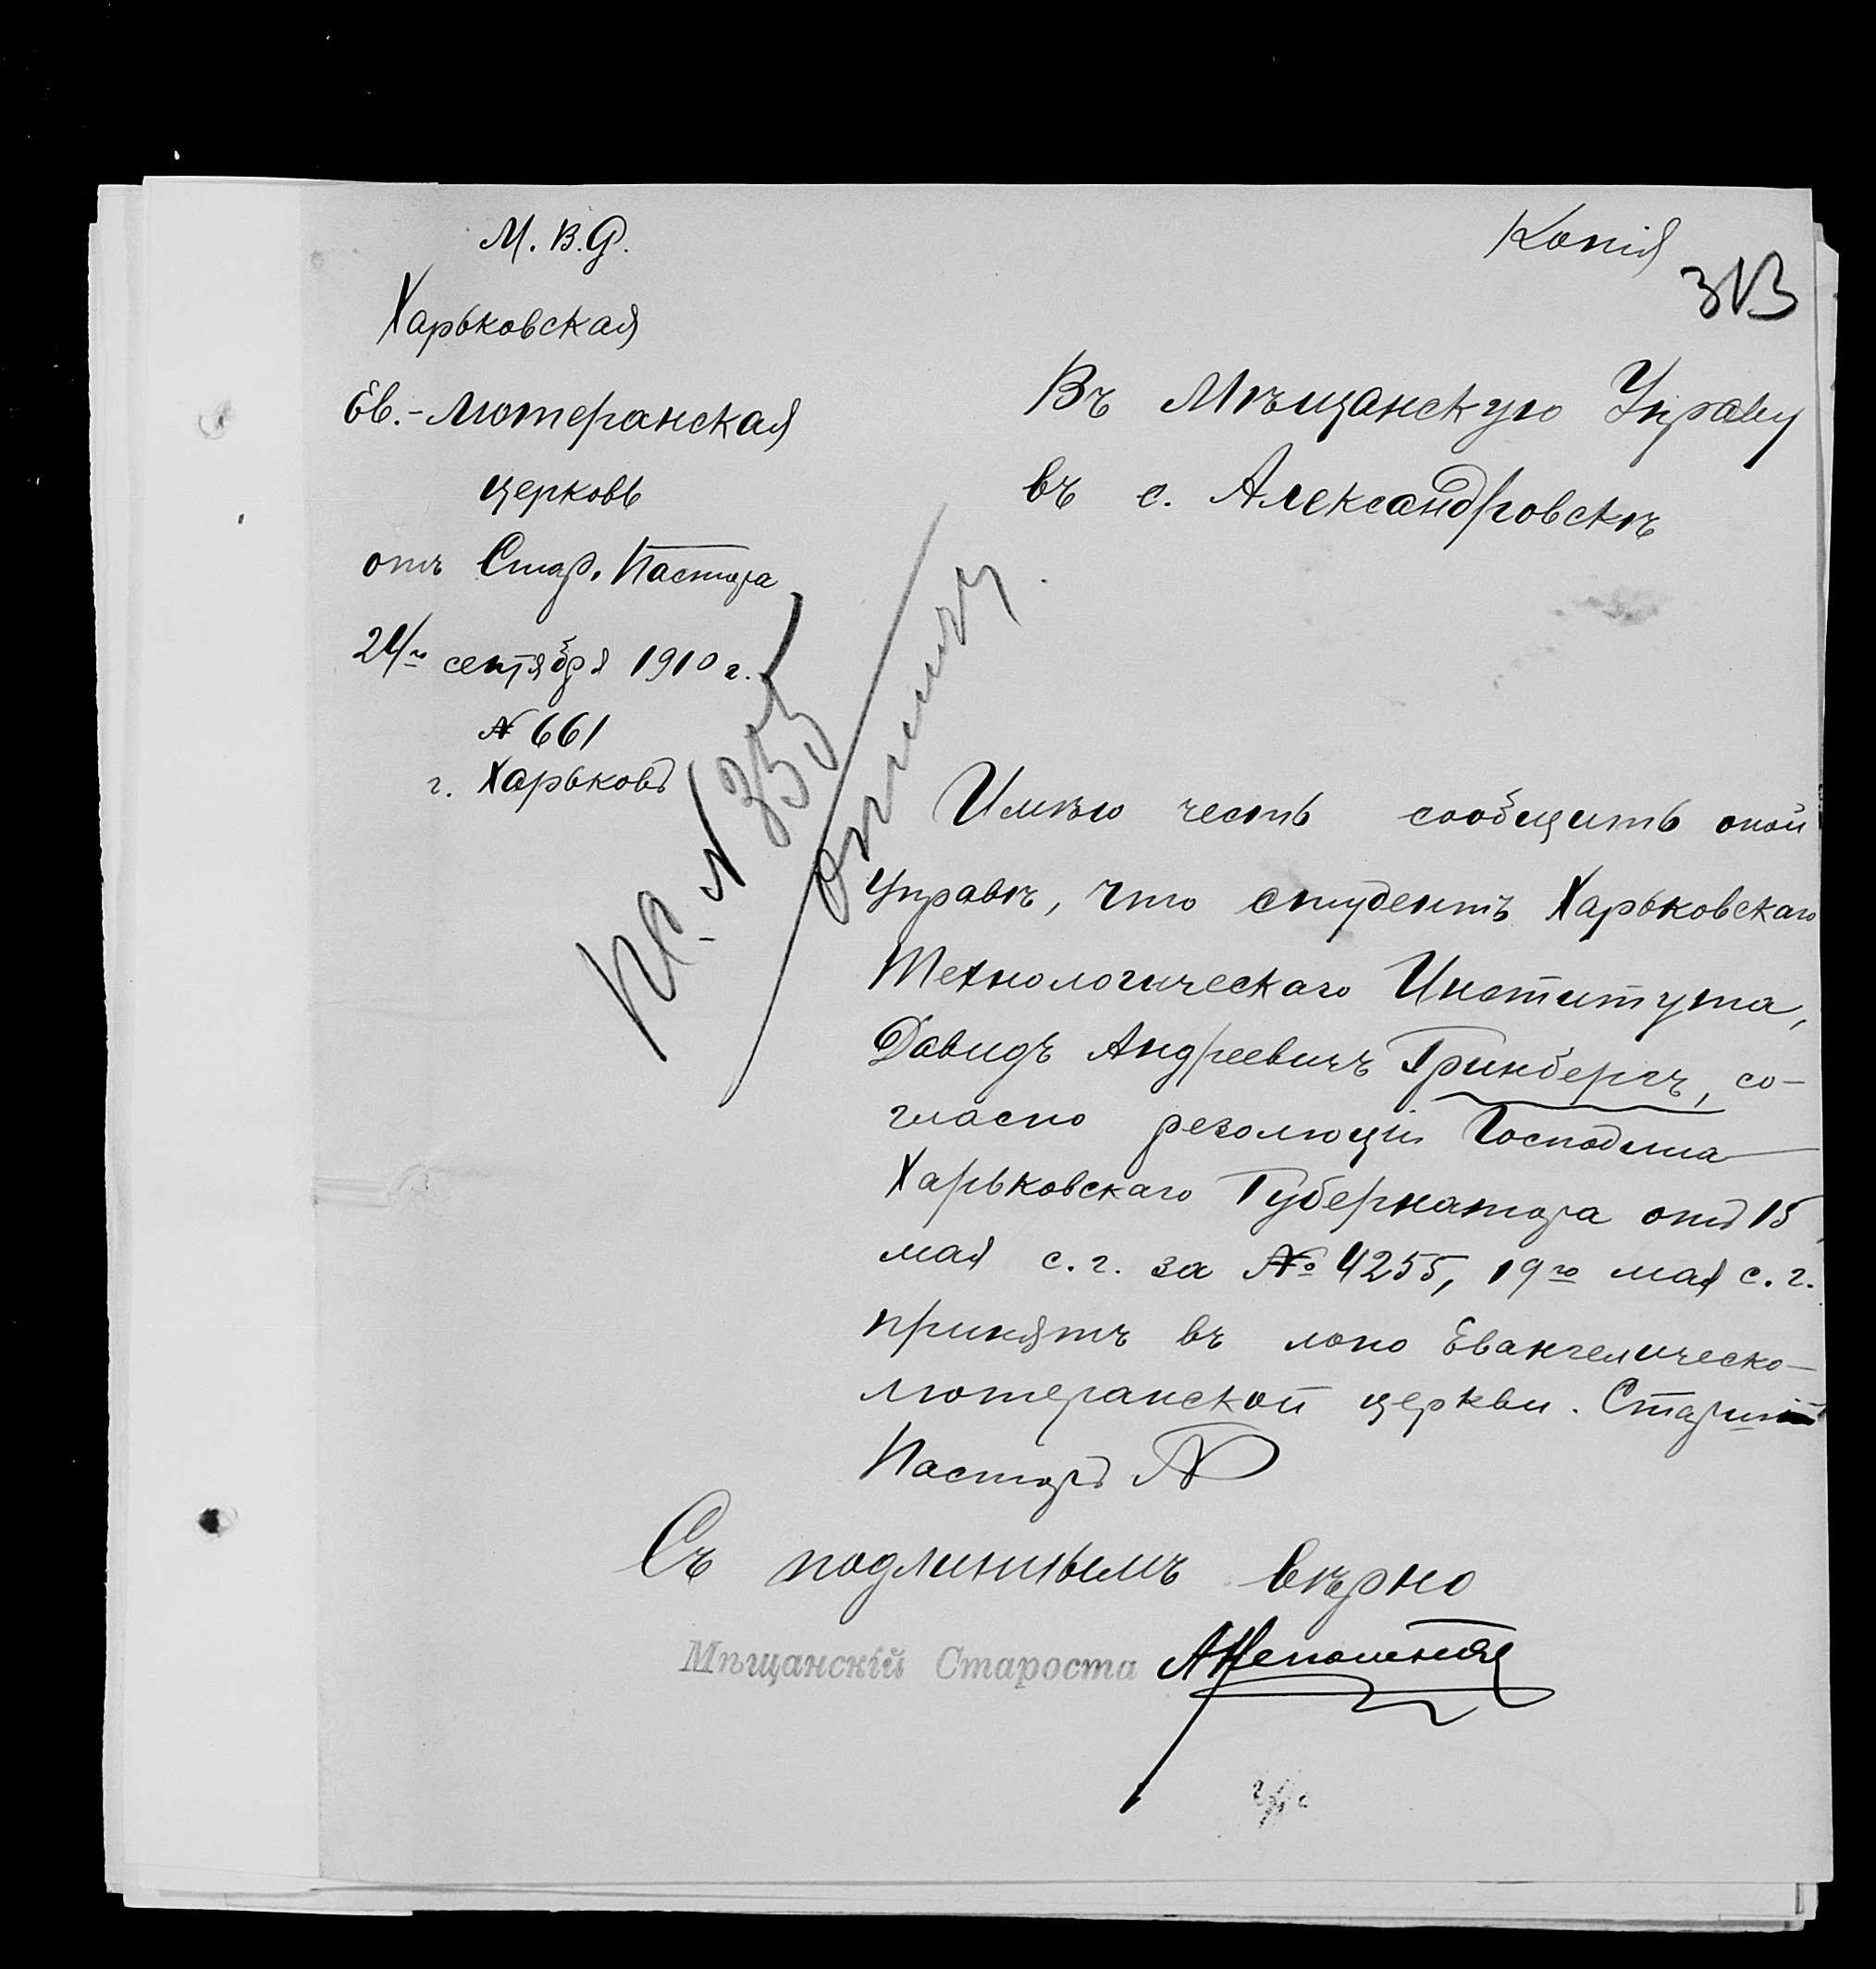 Копія
313
М. В. Д.
Харьковская
Ев.-Лютеранская
церковь
отъ Стар. Пастора
24го сентября 1910 г.
№ 661
г. Харьковъ
Въ Мѣщанскую Управу
въ г. Александровскѣ
№ 355
Имѣю честь сообщить оной
Управѣ, что студентъ Харьковскаго
Технологическаго Института,
Давидъ Андреевичъ Гринбергъ, со-
гласно резолюціи Господина
Харьковскаго Губернатора отъ 15
мая с. г. за № 4255, 19го мая с. г.
принятъ въ лоно Евангелическо-
лютеранской церкви. Старшій
Пасторъ
Съ подлиннымъ вѣрно
Мѣщанскій Староста